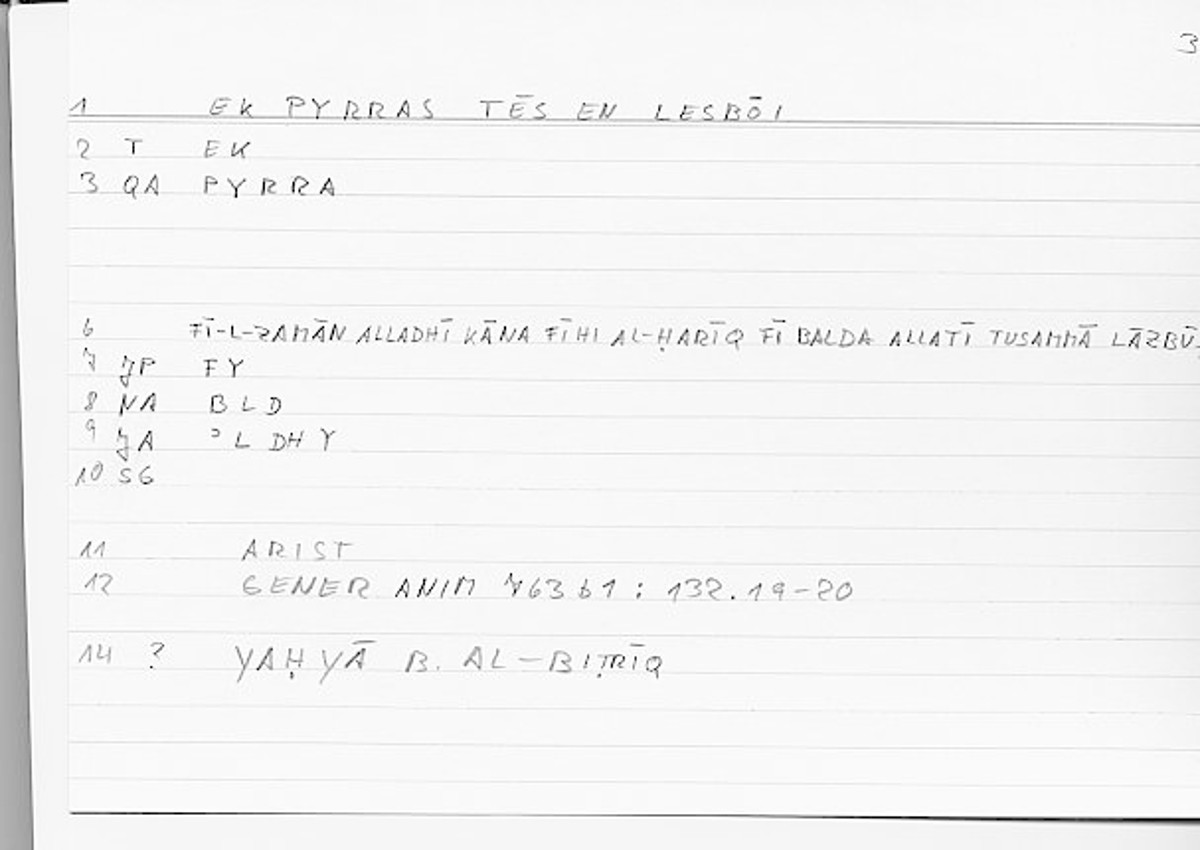 3
1 EK PYRRAS TĒS EN LESBŌI
2 T EK
3 QA PYRRA
6 FĪ-L-ZAMĀN ALLADHĪ KĀNA FĪHI AL-ḤARĪQ FĪ BALDA ALLATĪ TUSAMMĀ LĀZBŪ
7 JP FY
8 NA BLD
9 JA ʾLDHY
10 SG
11 ARIST
12 GENER ANIM 763b1 : 132.19-20
14 ? YAḤYĀ B. AL-BIṬRĪQ